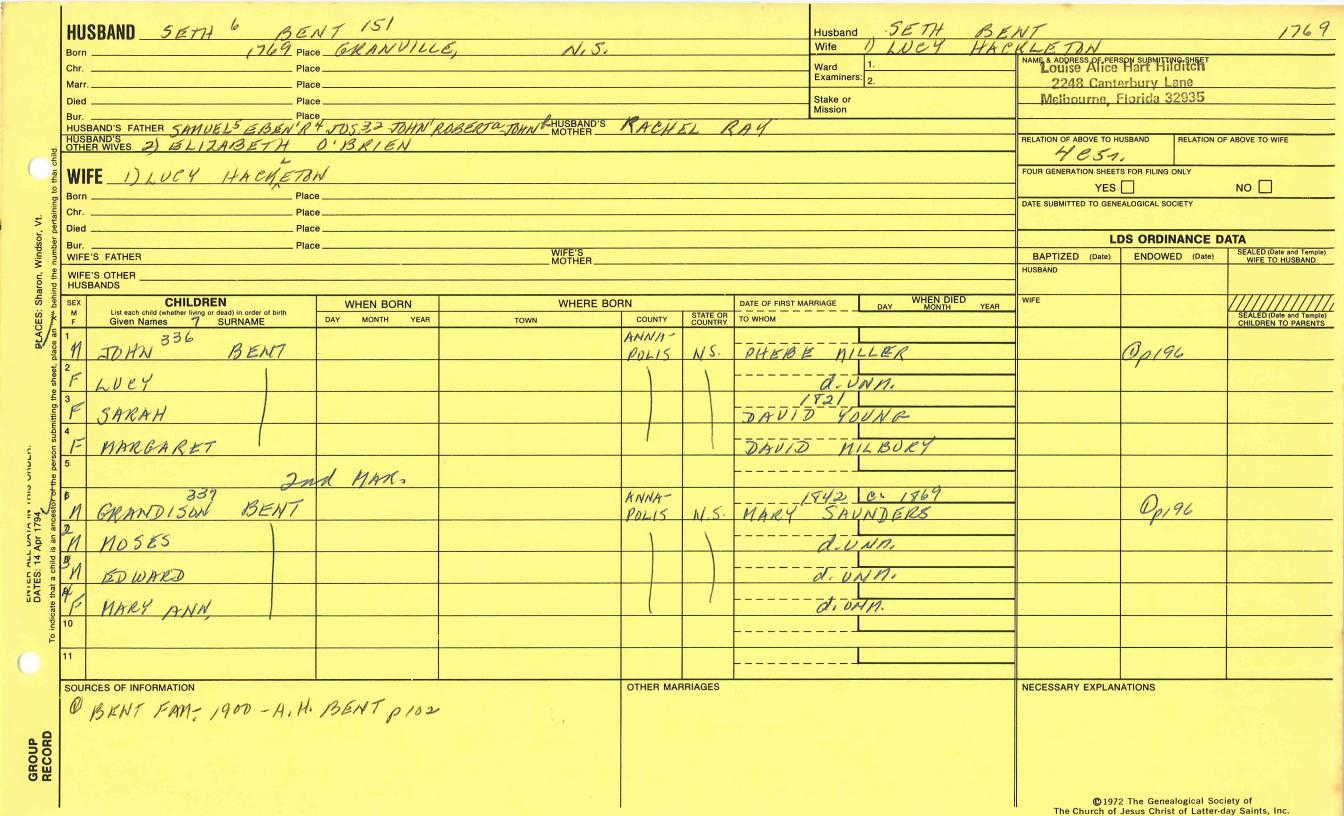 HUSBAND SETH 6 BENT 151
Born 1769 Place GRANVILLE, N.S.
Chr. Place
Marr. Place
Died Place
Bur. Place
HUSBAND'S FATHER SAMUEL5 EBEN'R4 JOS.32 JOHN1 ROBERTa JOHN HUSBAND'S MOTHER RACHEL RAY
HUSBAND'S OTHER WIVES 2) ELIZABETH O'BRIEN
Husband SETH BENT 1769
Wife 1) LUCY HACKLETON
Ward Examiners: 1.
2.
Stake or Mission
NAME & ADDRESS OF PERSON SUBMITTING SHEET
Louise Alice Hart Hilditch
2248 Canterbury Lane
Melbourne, Florida 32935
RELATION OF ABOVE TO HUSBAND RELATION OF ABOVE TO WIFE
FOUR GENERATION SHEETS FOR FILING ONLY
YES NO
DATE SUBMITTED TO GENEALOGICAL SOCIETY
WIFE 1) LUCY HACKLETON
Born Place
Chr. Place
Died Place
Bur. Place
WIFE'S FATHER WIFE'S MOTHER
WIFE'S OTHER HUSBANDS
LDS ORDINANCE DATA
BAPTIZED (Date) ENDOWED (Date) SEALED (Date and Temple) WIFE TO HUSBAND
HUSBAND
WIFE
SEALED (Date and Temple) CHILDREN TO PARENTS
SEX M F CHILDREN List each child (whether living or dead) in order of birth Given Names 7 SURNAME WHEN BORN DAY MONTH YEAR WHERE BORN TOWN COUNTY STATE OR COUNTRY DATE OF FIRST MARRIAGE TO WHOM WHEN DIED DAY MONTH YEAR
1 M JOHN 336 BENT ANNA-POLIS N.S. PHEBE MILLER ① p196
2 F LUCY d. UNM.
3 F SARAH 1821 DAVID YOUNG
4 F MARGARET DAVID MILBURY
5 2nd MAR.
6 M GRANDISON 337 BENT ANNA-POLIS N.S. 1842 c. 1869 MARY SAUNDERS ① p196
2 M MOSES d. UNM.
3 M EDWARD d. UNM.
4 F MARY ANN, d. UNM.
10
11
SOURCES OF INFORMATION OTHER MARRIAGES NECESSARY EXPLANATIONS
① BENT FAM- 1900 - A.H. BENT p102
©1972 The Genealogical Society of
The Church of Jesus Christ of Latter-day Saints, Inc.
GROUP RECORD
ENTER ALL DATA IN THIS ORDER:
DATES: 14 Apr 1794
PLACES: Sharon, Windsor, Vt.
To indicate that a child is an ancestor of the person submitting the sheet, place an "X" behind the number pertaining to that child.